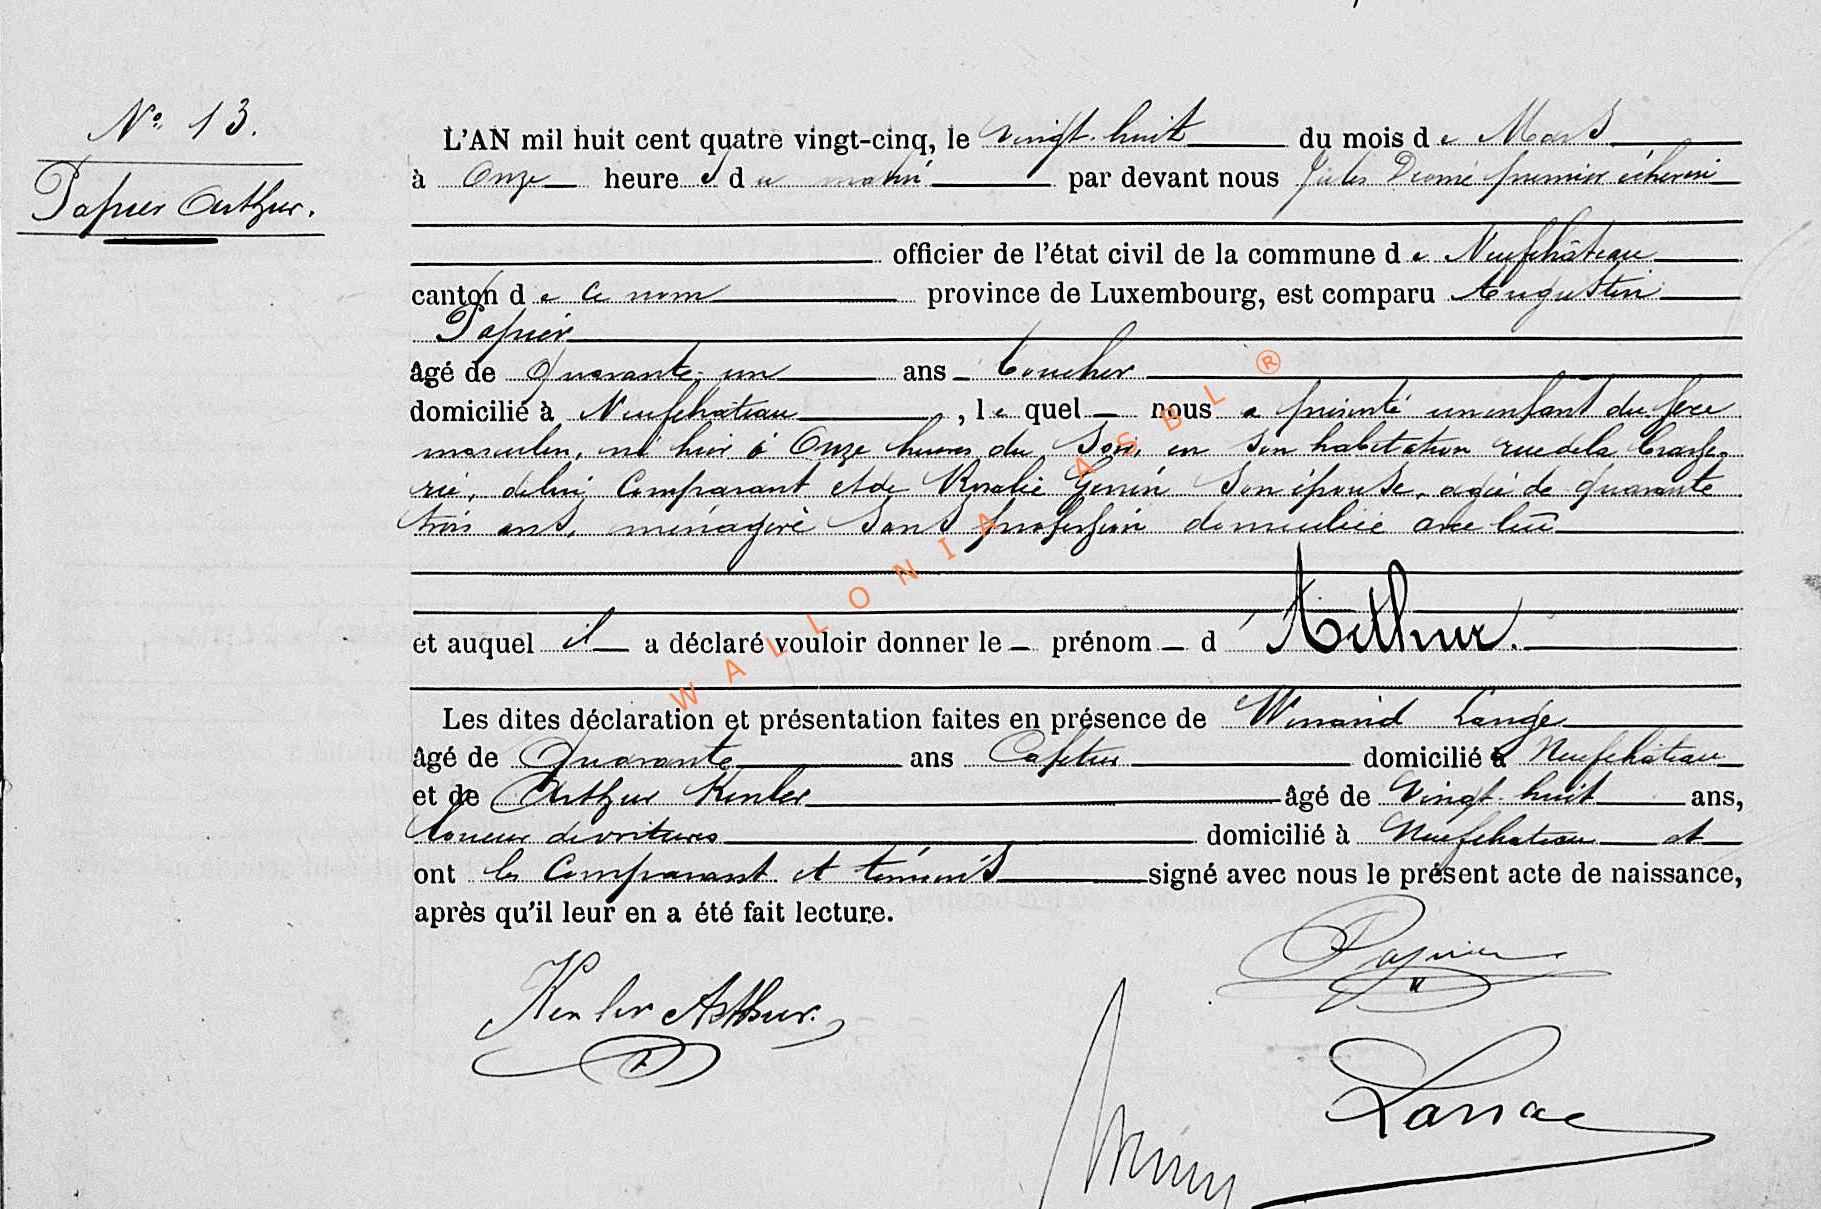 N° 13.
Papier Arthur.
L'AN mil huit cent quatre vingt-cinq, le vingt-huit du mois de Mars
à Onze heures du matin par devant nous Jules premier échevin
officier de l'état civil de la commune de Neufchâteau
canton de ce nom province de Luxembourg, est comparu Augustin
Papier
âgé de Quarante-un ans boucher
domicilié à Neufchâteau, lequel nous a présenté un enfant du sexe
masculin, né hier à Onze heures du Soir, en son habitation rue de la brasse-
rie, de lui Comparant et de Rosalie son épouse, agée de quarante
trois ans, ménagère sans profession domiciliée avec lui
et auquel il a déclaré vouloir donner le prénom d'Arthur.
Les dites déclaration et présentation faites en présence de Winand Lange
âgé de Quarante ans Cafetier domicilié à Neufchâteau
et de Arthur Kenler âgé de Vingt-huit ans,
loueur de voitures domicilié à Neufchateau et
ont les Comparant et témoins signé avec nous le présent acte de naissance,
après qu'il leur en a été fait lecture.
Papier
Kenler Arthur.
WALLONIA ASBL ®